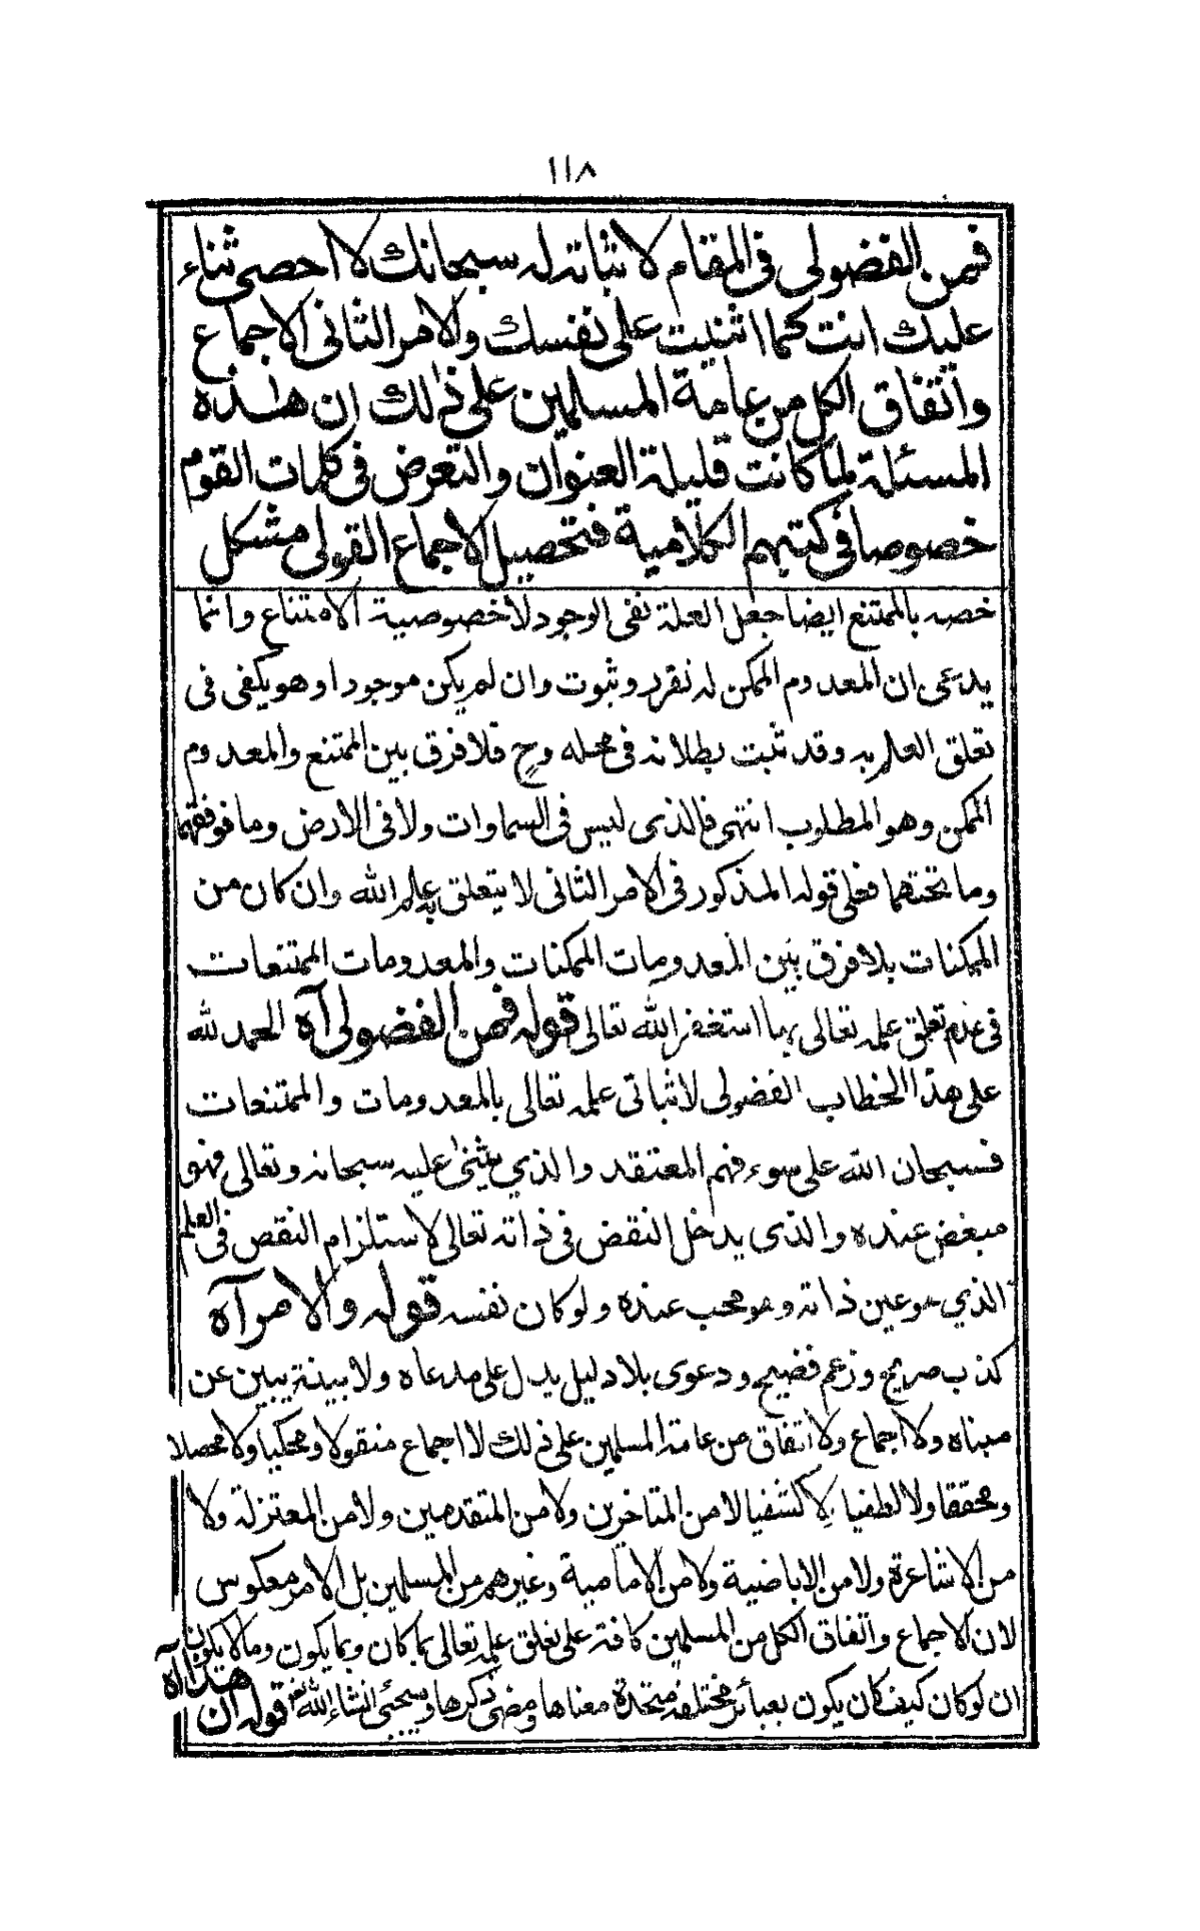 ١١٨
فمن الفضولى فى المقام لاثباته له سبحانك لا احصى ثناء
عليك انت كما اثنيت على نفسك والامر الثانى الاجماع
واتفاق الكل من عامة المسلمين على ذلك ان هذه
المسئلة لما كانت قليلة العنوان والتعرض فى كلمات القوم
خصوصا فى كتبهم الكلامية فتحصيل الاجماع القولى مشكل
خصه بالممتنع ايضا جعل العلة نفى الوجود لا خصوصية الامتناع وانما
يدعى ان المعدوم الممكن له تقرر وثبوت وان لم يكن موجودا وهو يكفى فى
تعلق العلم به وقد ثبت بطلانه فى محله وح فلا فرق بين الممتنع والمعدوم
الممكن وهو المطلوب انتهى فالذى ليس فى السماوات ولا فى الارض وما فوقهما
وما تحتهما فعلى قوله المذكور فى الامر الثانى لا يتعلق به علم الله وان كان من
الممكنات بلا فرق بين المعدومات الممكنات والمعدومات الممتنعات
فى عدم تعلق علمه تعالى بها استغفر الله تعالى قوله فمن الفضولى آه الحمد لله
على هذا الخطاب الفضولى لاثباتى علمه تعالى بالمعدومات والممتنعات
فسبحان الله على سوء فهم المعتقد والذي يثنى عليه سبحانه وتعالى فهو
مبغض عنده والذى يدخل النقض فى ذاته تعالى لاستلزام النقص فى العلم
الذي هو عين ذاته وهو محب عنده ولو كان نفسه قوله والامر آه
كذب صريح وزعم فضيح ودعوى بلا دليل يدل على مدعاه ولا بينة يبين عن
مبناه ولا اجماع ولا اتفاق من عامة المسلمين على ذلك لا اجماع منقولا ومحكيا ولا محصلا
ومحققا ولا لطفيا ولا كشفيا لا من المتاخرين ولا من المتقدمين ولا من المعتزلة ولا
من الاشاعرة ولا من الاباضية ولا من الامامية وغيرهم من المسلمين بل الامر معكوس
لان الاجماع واتفاق الكل من المسلمين كافة على تعلق علمه تعالى بما كان وبما يكون وما لا يكون
ان لو كان كيف كان يكون بعبائر مختلفة متحدة معناها ومضى ذكرها وسيجئ انشاء الله تع قوله ان هذا آه